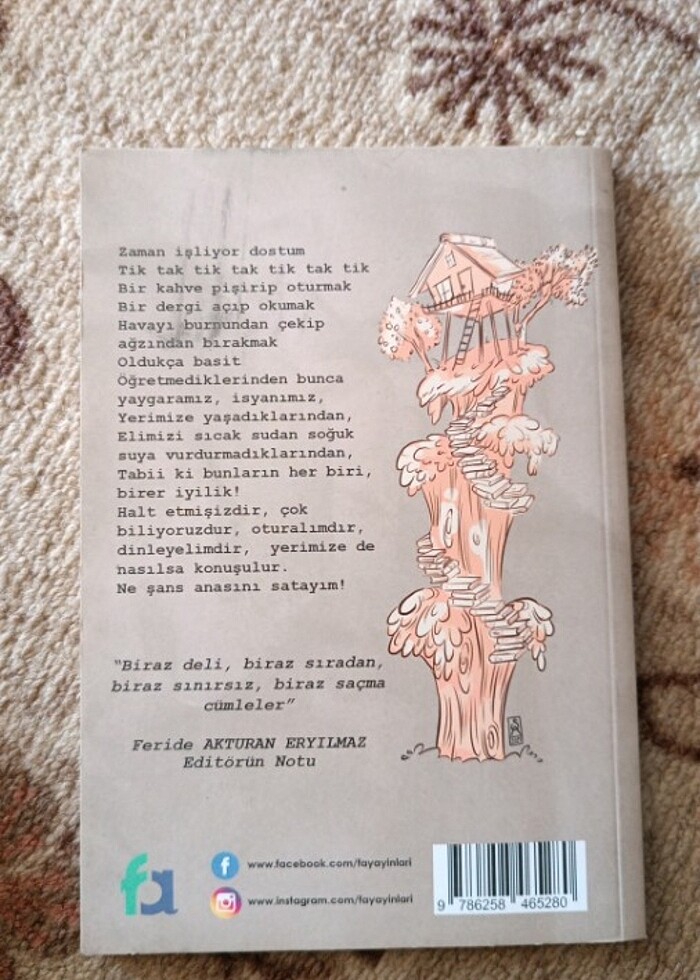 Zaman işliyor dostum
Tik tak tik tak tik tak tik
Bir kahve pişirip oturmak
Bir dergi açıp okumak
Havayı burnundan çekip
ağzından bırakmak
Oldukça basit
Öğretmediklerinden bunca
yaygaramız, isyanımız,
Yerimize yaşadıklarından,
Elimizi sıcak sudan soğuk
suya vurdurmadıklarından,
Tabii ki bunların her biri,
birer iyilik!
Halt etmişizdir, çok
biliyoruzdur, oturalımdır,
dinleyelimdir, yerimize de
nasılsa konuşulur.
Ne şans anasını satayım!
"Biraz deli, biraz sıradan,
biraz sınırsız, biraz saçma
cümleler"
Feride AKTURAN ERYILMAZ
Editörün Notu
fa
f www.facebook.com/fayayinlari
www.instagram.com/fayayinlari
9 786258 465280